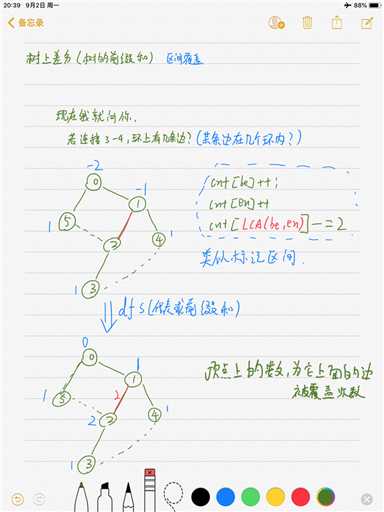 20:39 9月2日 周一
88%
备忘录
树上差分(树的前缀和) 区间覆盖
现在我就问你,
若连接3-4,环上有几条边?(某条边在几个环内?)
-2
0
-1
1
1
5
2
4
1
1
3
cnt[be]++;
cnt[en]++
cnt[LCA(be,en)]-=2
类似标记区间.
dfs(代表求前缀和)
0
0
1
1
2
1
5
2
2
4
1
1
3
顶点上的数,为它上面的边
被覆盖次数